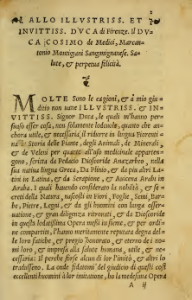 ALLO ILLVSTRISS. ET
INVITTISS. DVCA di Firenze. il DV
CA COSIMO de Medici, Marcan-
tonio Montigiani Sangimignanese. Sa-
lute, & perpetua felicità.
MOLTE Sono le cagioni, & à mio giu-
dizio non uane ILLVSTRISS. & IN-
VITTISS. Signor Duca, le quali m'hanno per-
suaso esser cosa, non solamente lodeuole, quanto che an-
chora utile, & il ridurre in lingua Fiorenti
na la Storia delle Piante, degli Animali, de Minerali,
& de Veleni per quanto all'uso medicinale apparten-
gono, scritta da Pedacio Dioscoride Anazarbeo, nella
sua natiua lingua Greca, Da Plinio, & da piu altri La-
tini in Latina, & da Serapione, & Auicenna Arabi in
Araba. I quali hauendo considerato la nobiltà, & se-
creti della Natura, nascosti in Fiori, Foglie, Semi, Bar-
be, Pietre, Legni, & da gli huomini con lunga osser-
uatione, & gran diligenza ritrouati, & da Dioscoride
in questa bellissima Opera messi in
& con grande
loro fatiche, & proprio honorato, & eterno dei no-
mi loro, & imposto alla salute humana, utile, & ne-
cessario. Il perche forse alcun di lor l'inuita, & altri lo
tralasciano. La onde fidatomi del giudicio di quelli cosi
eccellenti huomini à lor imitatione, ho la medesima Opera
A ij